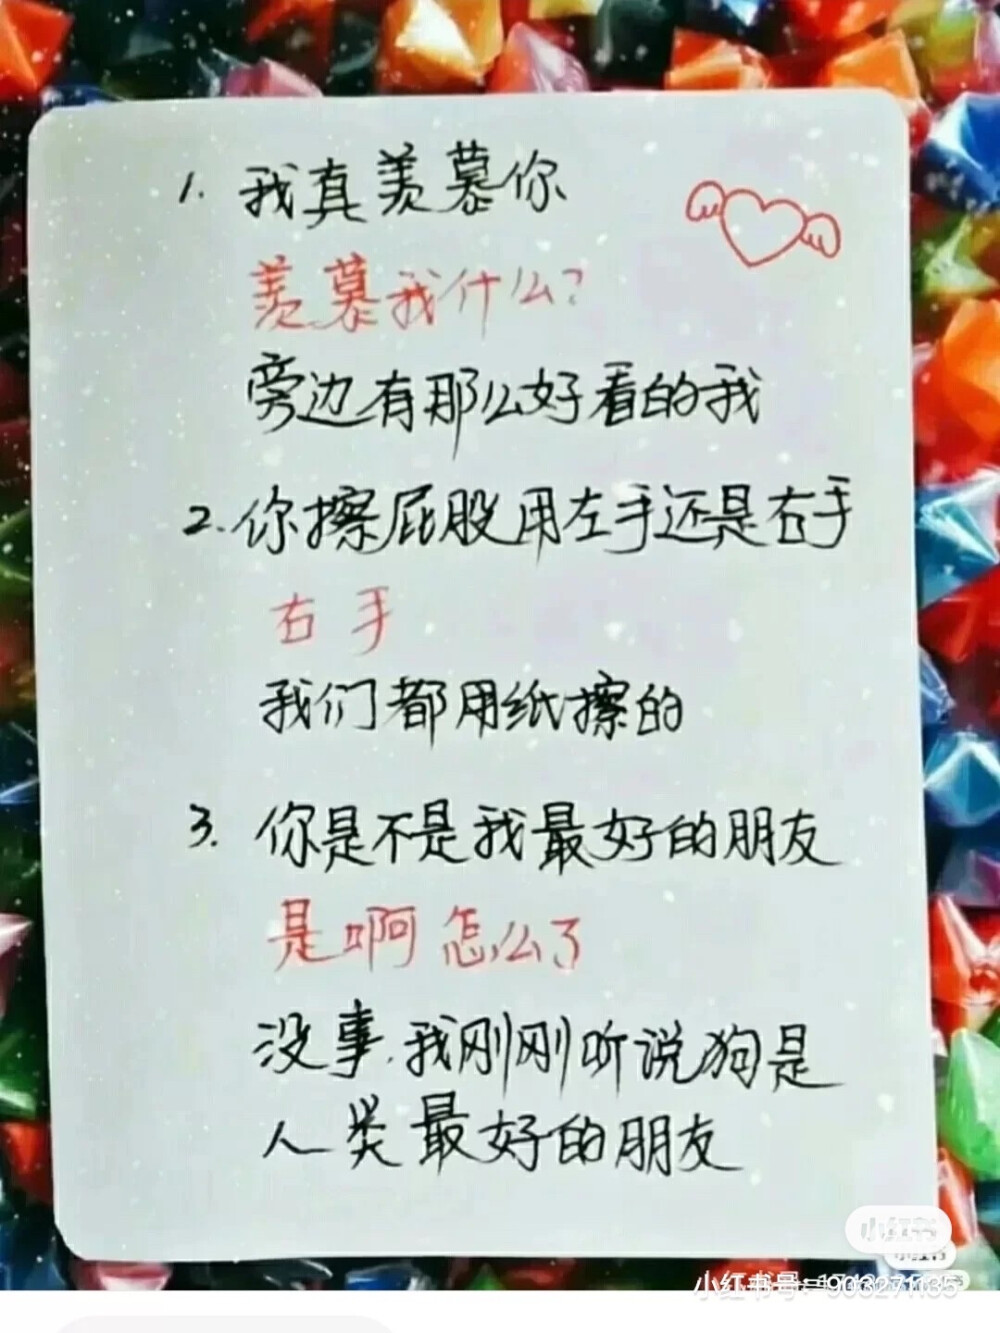 1. 我真羡慕你
羡慕我什么?
旁边有那么好看的我
2. 你擦屁股用左手还是右手
右手
我们都用纸擦的
3. 你是不是我最好的朋友
是啊 怎么了
没事,我刚刚听说狗是
人类最好的朋友
小红书
小红书